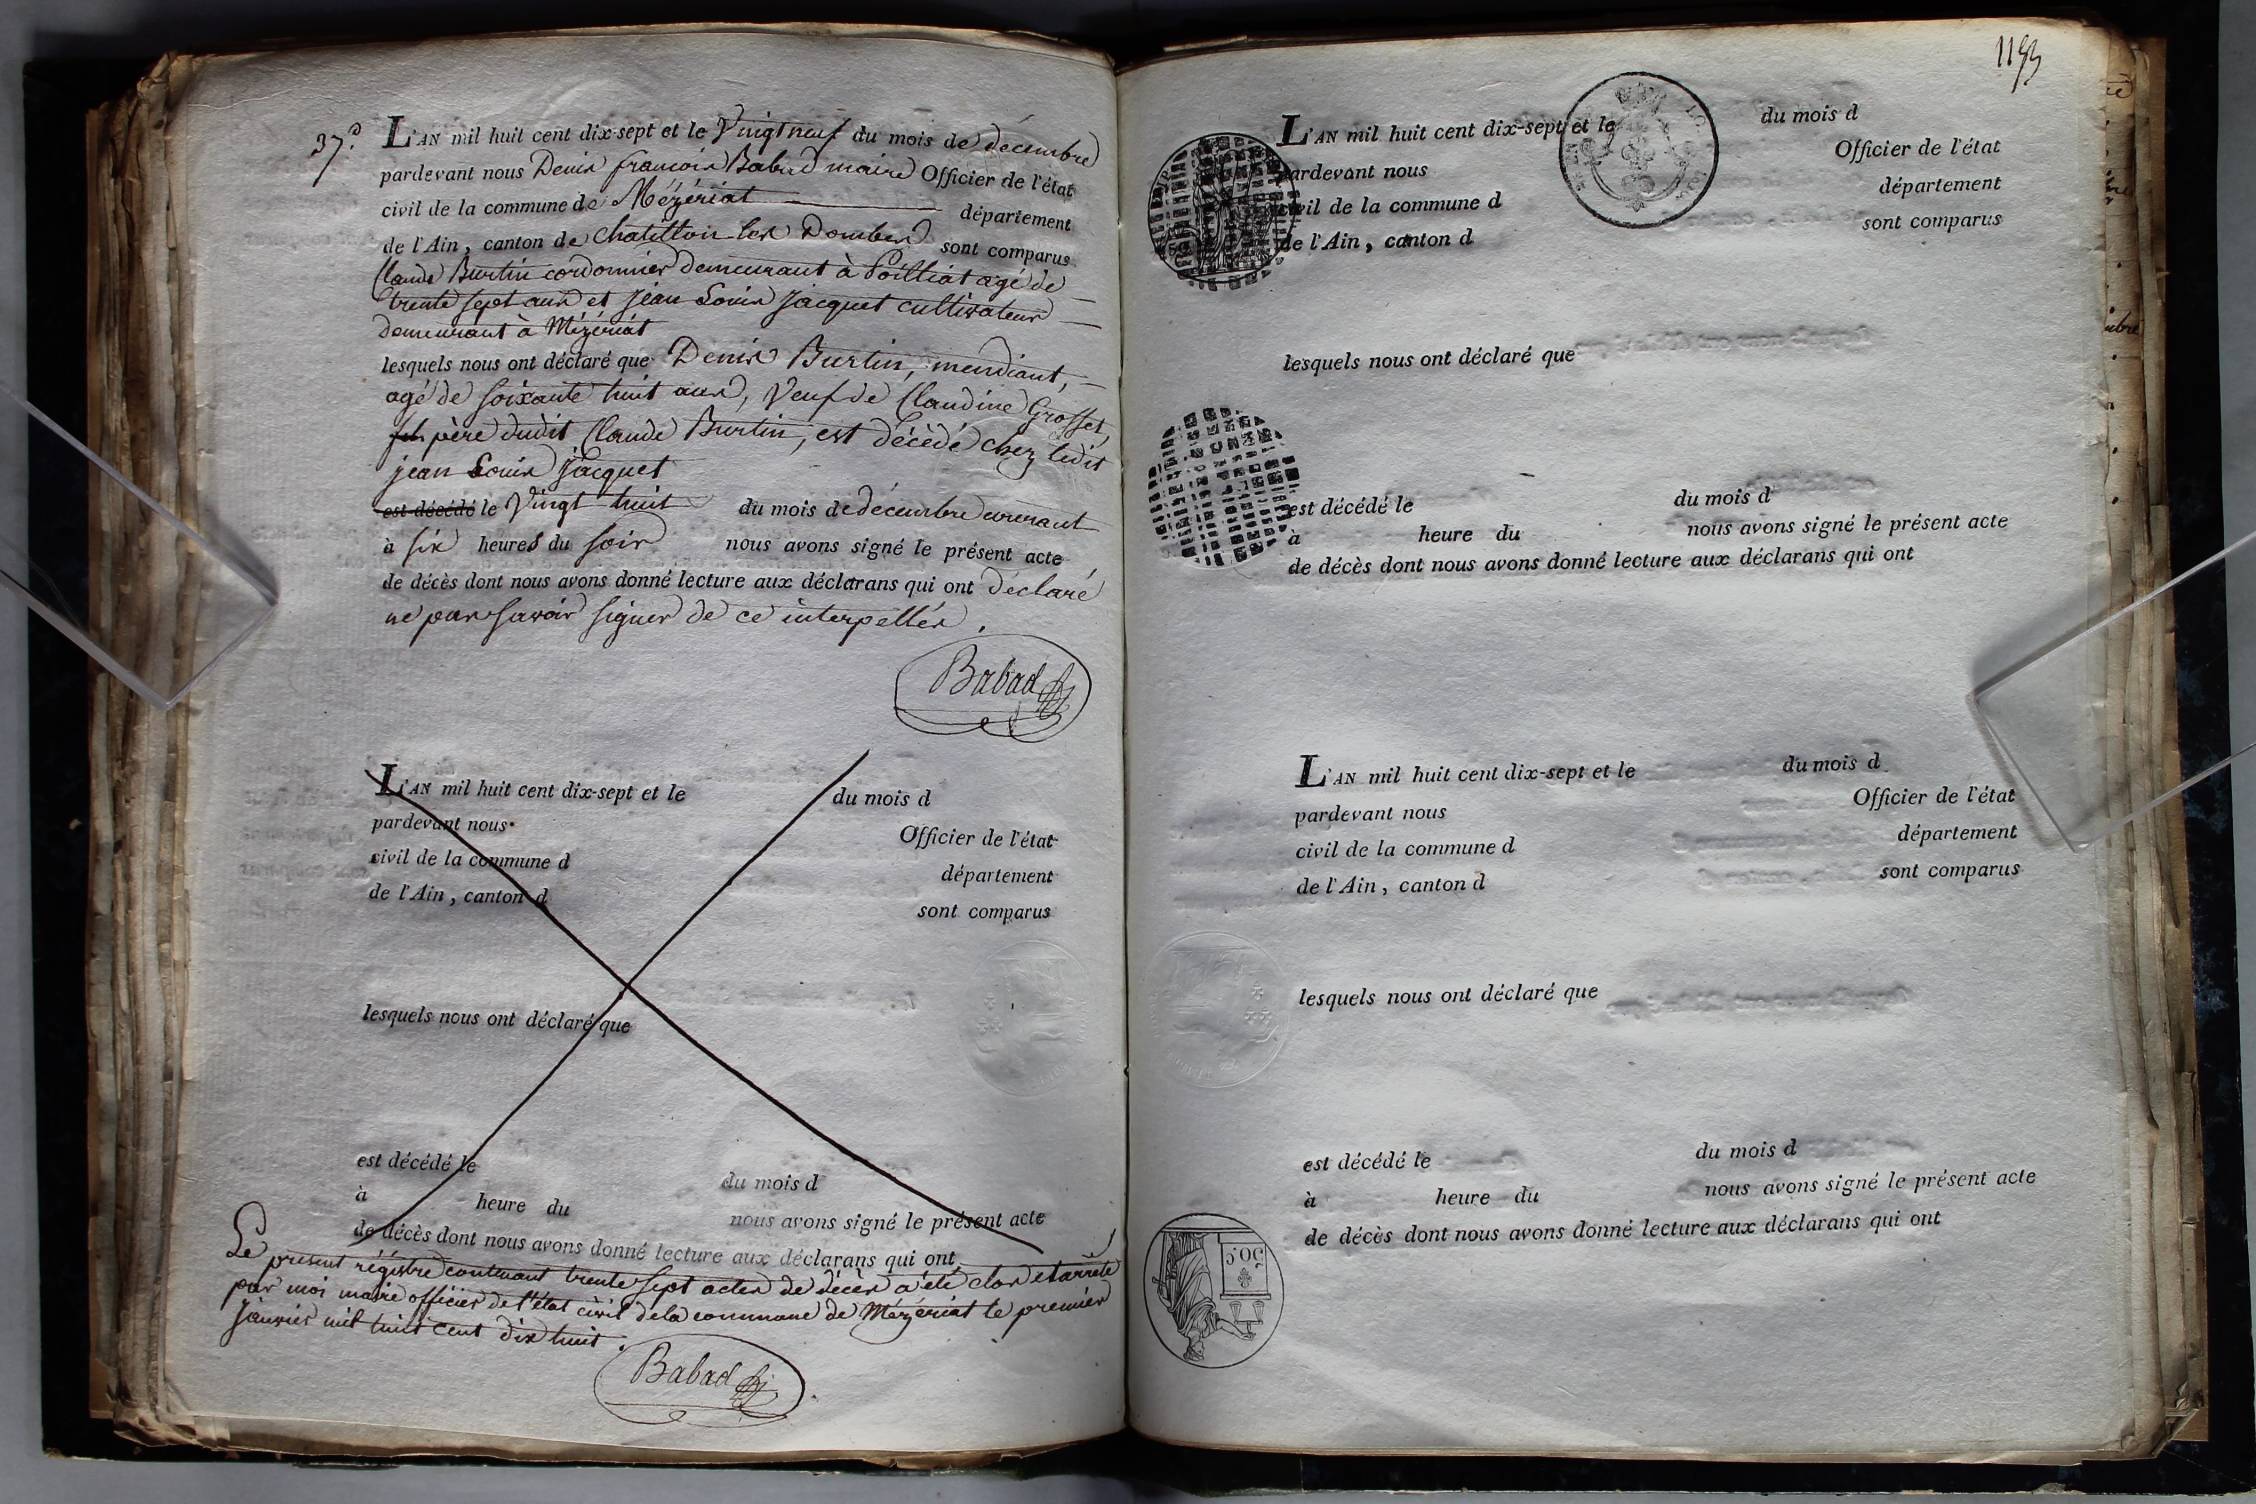 37.e
L'AN mil huit cent dix-sept et le Vingt neuf du mois de décembre
pardevant nous Denis françois Babad maire Officier de l'état
civil de la commune de Mézériat département
de l'Ain, canton de Chatillon les Dombes sont comparus
Claude Burtin cordonnier demeurant à Polliat agé de
trente sept ans et jean Louis Jacquet cultivateur
demeurant à Mézériat
lesquels nous ont déclaré que Denis Burtin, mendiant,
agé de soixante huit ans, Veuf de Claudine Grosset,
père dudit Claude Burtin, est décédé chez ledit
jean Louis Jacquet
est décédé le Vingt huit du mois de décembre courant
à six heures du soir nous avons signé le présent acte
de décès dont nous avons donné lecture aux déclarans qui ont déclaré
ne pas savoir signer de ce interpellés.
Babad
L'AN mil huit cent dix-sept et le du mois d
pardevant nous
Officier de l'état
civil de la commune d
département
de l'Ain, canton d
sont comparus
lesquels nous ont déclaré que
est décédé le du mois d
à heure du nous avons signé le présent acte
de décès dont nous avons donné lecture aux déclarans qui ont
Le present régistre contenant trente sept actes de décès a été clos et arrêté
par moi maire officier de l'état civil de la commune de Mézériat le premier
janvier mil huit cent dix huit.
Babad
1153
L'AN mil huit cent dix-sept et le du mois d
pardevant nous Officier de l'état
civil de la commune d département
de l'Ain, canton d sont comparus
lesquels nous ont déclaré que
est décédé le du mois d
à heure du nous avons signé le présent acte
de décès dont nous avons donné lecture aux déclarans qui ont
L'AN mil huit cent dix-sept et le du mois d
pardevant nous Officier de l'état
civil de la commune d département
de l'Ain, canton d sont comparus
lesquels nous ont déclaré que
est décédé le du mois d
à heure du nous avons signé le présent acte
de décès dont nous avons donné lecture aux déclarans qui ont
50.C